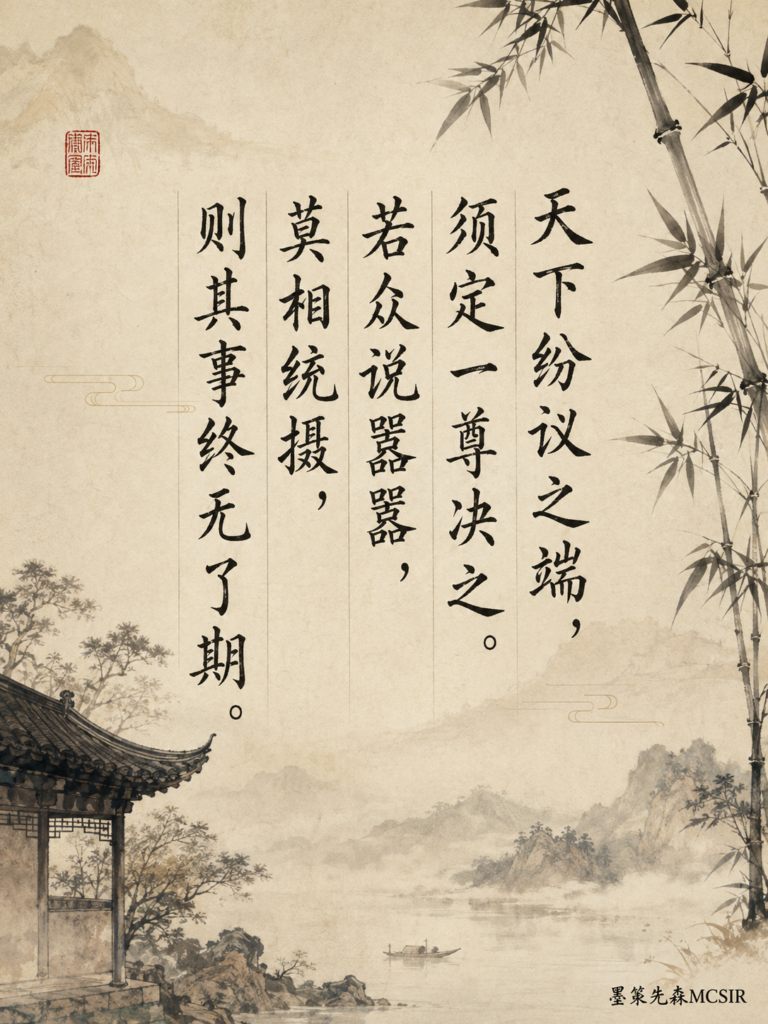 天下纷议之端，
须定一尊决之。
若众说嚣嚣，
莫相统摄，
则其事终无了期。
墨策先森MCSIR